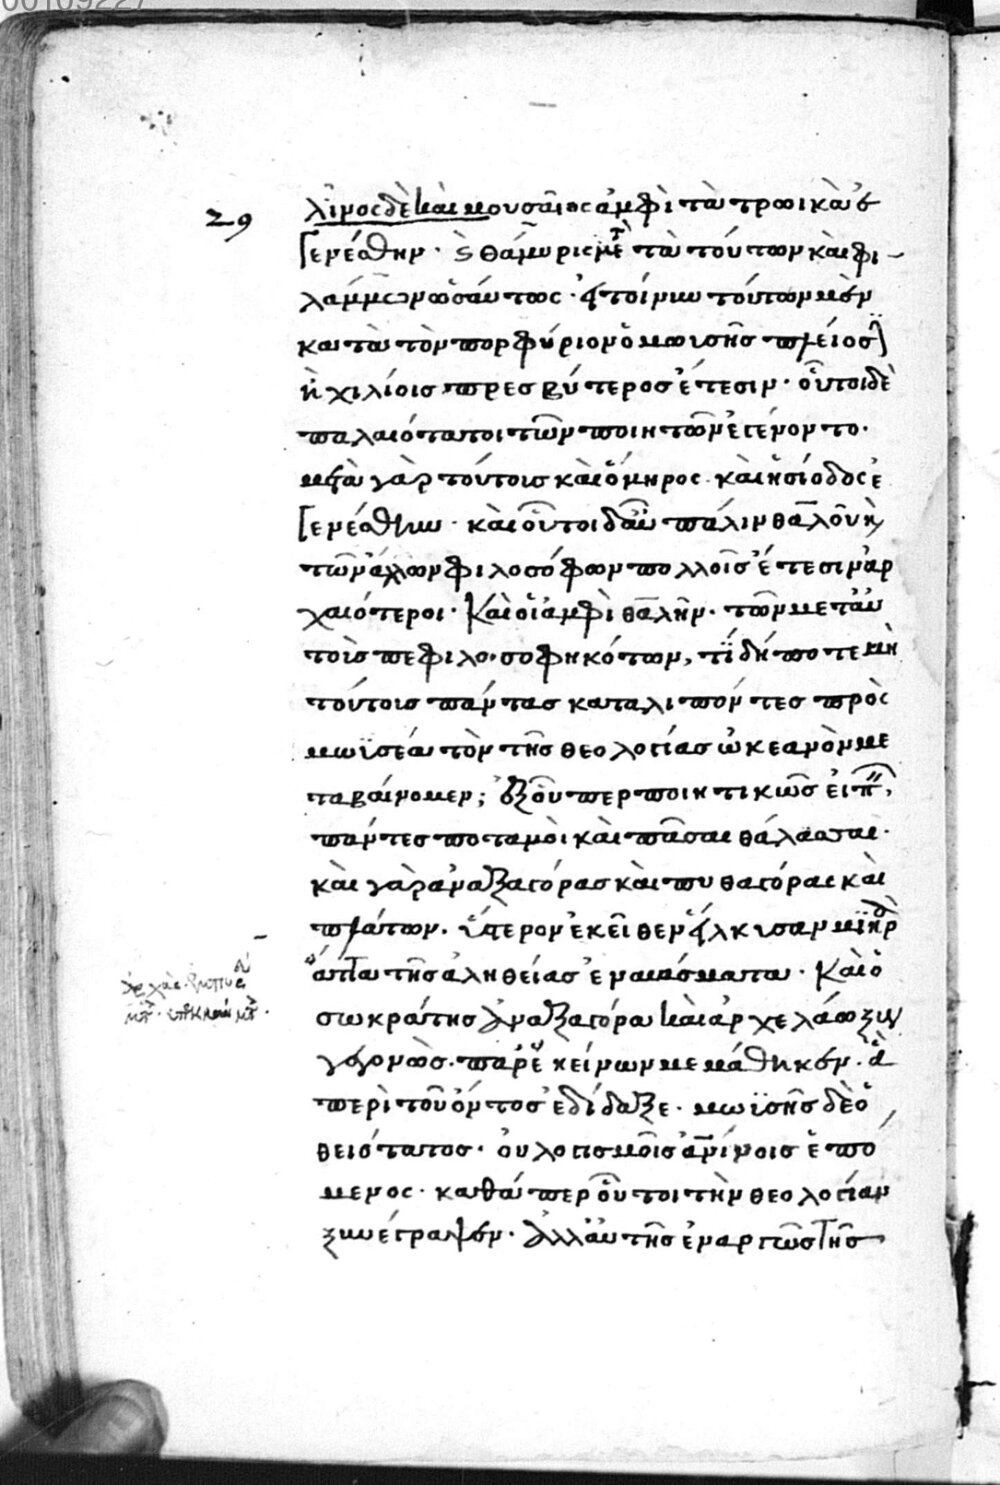 00109227
29 λίνος δὲ καὶ μουσαῖος ἀμφὶ τὰ τρωικὰ ἐ
γενέσθην · καὶ θάμυρις μετὰ τὰ τούτων καὶ φι
λάμμων ὡσαύτως · τοίνυν τούτων μὲν
κατὰ τὸν πορφύριον ὁ μωυσῆς πλείοσιν
ἢ χιλίοις πρεσβύτερος ἔτεσιν · οὗτοι δὲ
παλαιότατοι τῶν ποιητῶν ἐγένοντο ·
μετὰ γὰρ τούτοις καὶ ὅμηρος καὶ ἡσίοδος ἐ
γενέσθην · καὶ οὗτοι δ' αὖ πάλιν θαλοῦ καὶ
τῶν ἄλλων φιλοσόφων πολλοῖς ἔτεσιν ἀρ
χαιότεροι · καὶ οἱ ἀμφὶ θαλῆν · τῶν μετ' αὐ
τοὺς πεφιλοσοφηκότων, τί δήποτε μὴ
τούτοις πάντας καταλιπόντες πρὸς
μωϊσέα τὸν τῆς θεολογίας ὠκεανὸν με
ταβαίνομεν; ἐξ οὗπερ ποιητικῶς εἰπεῖν,
πάντες ποταμοὶ καὶ πᾶσαι θάλασσαι ·
καὶ γὰρ ἀναξαγόρας καὶ πυθαγόρας καὶ
πλάτων · ὕστερον ἐκεῖθεν εἵλκυσαν μικρ
ἄττα τῆς ἀληθείας ἐναύσματα · καὶ ὁ
σωκράτης ἀναξαγόρα καὶ ἀρχελάω ξυγ
γεγονὼς · παρ' ἐκείνων μεμάθηκεν · ἃ
περὶ τοῦ ὄντος ἐδίδαξε · μωϊσῆς δὲ ὁ
θειότατος · οὐ λογισμοῖς ἀνίνοις ἑπό
μενος · καθάπερ οὗτοι τὴν θεολογίαν
ξυνέγραψεν · ἀλλ' αὐτῆς ἐναργῶς τῆς